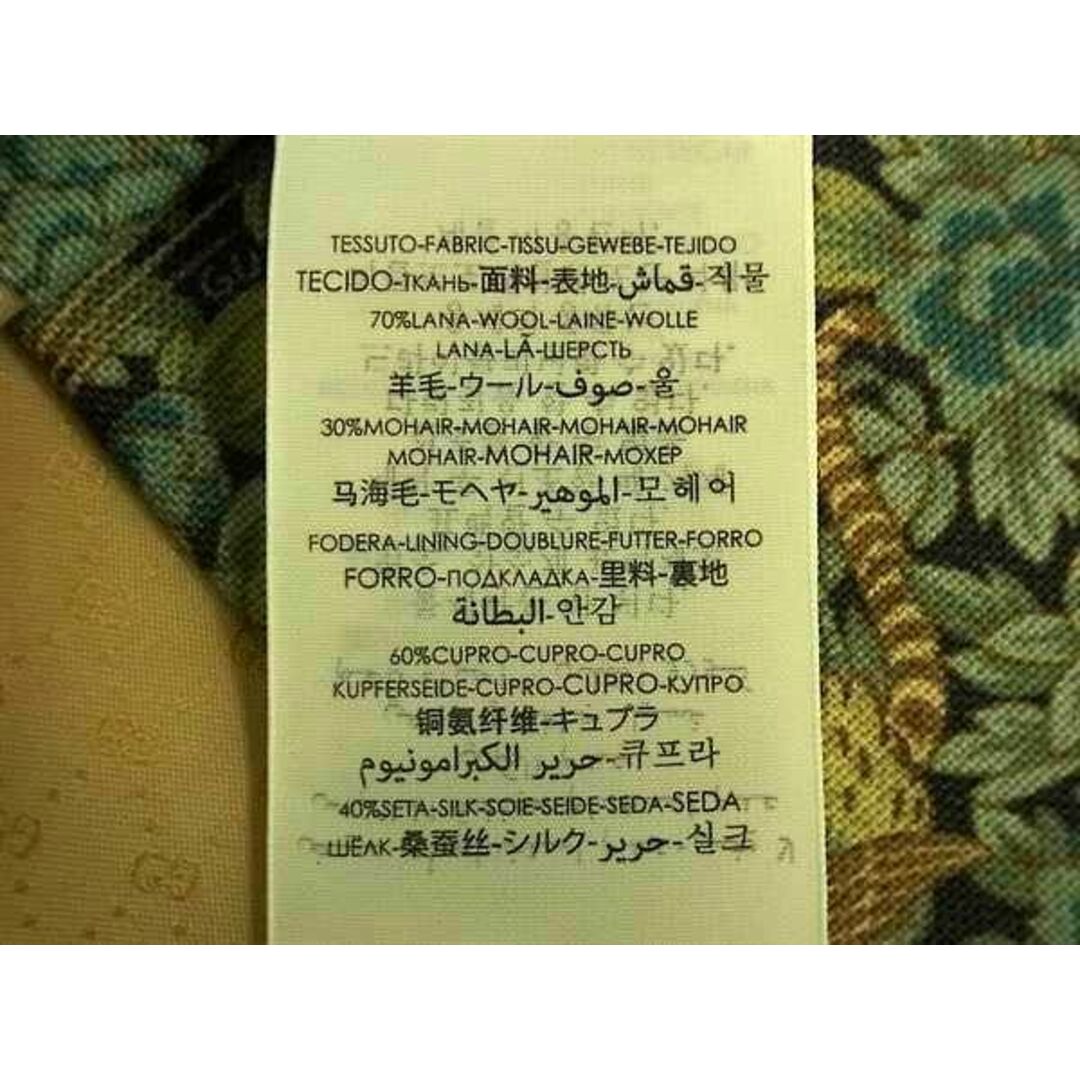 TESSUTO-FABRIC-TISSU-GEWEBE-TEJIDO
TECIDO-ТКАНЬ-面料-表地-قماش-직물
70%LANA-WOOL-LAINE-WOLLE
LANA-LÃ-ШЕРСТЬ
羊毛-ウール-صوف-울
30%MOHAIR-MOHAIR-MOHAIR-MOHAIR
MOHAIR-MOHAIR-МОХЕР
马海毛-モヘヤ-الموهير-모헤어
FODERA-LINING-DOUBLURE-FUTTER-FORRO
FORRO-ПОДКЛАДКА-里料-裏地
البطانة-안감
60%CUPRO-CUPRO-CUPRO
KUPFERSEIDE-CUPRO-CUPRO-КУПРО
铜氨纤维-キュプラ
حرير الكبرامونيوم-큐프라
40%SETA-SILK-SOIE-SEIDE-SEDA-SEDA
ШЁЛК-桑蚕丝-シルク-حرير-실크